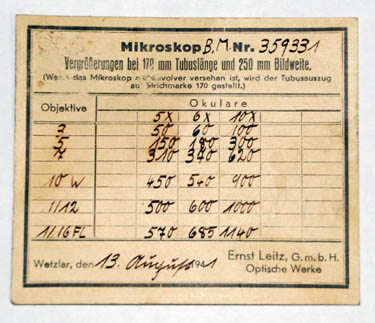 Mikroskop B.M. Nr. 359331
Vergrößerungen bei 170 mm Tubuslänge und 250 mm Bildweite.
(Wenn das Mikroskop mit Revolver versehen ist, wird der Tubusauszug
auf Strichmarke 170 gestellt.)
Objektive Okulare
5x 6x 10x
3 50 60 100
5 150 180 300
7 310 370 620
10 W 450 540 900
1/12 500 600 1000
1/16 FL 570 685 1140
Wetzlar, den 13. August 1941 Ernst Leitz, G.m.b.H.
Optische Werke